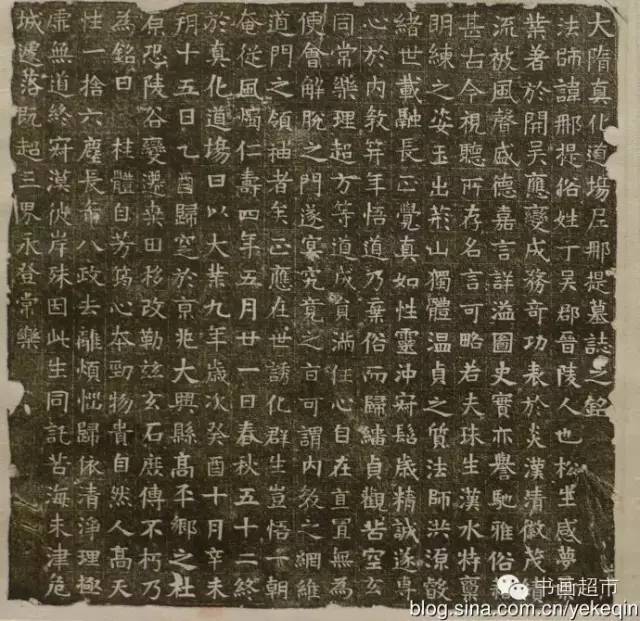 大隋真化道場尼那提墓誌之銘
法師諱那提俗姓丁吳郡晉陵人也松生感夢
葉著於開吳應變成務奇功表於炎漢清徽茂
流被風聲盛德嘉言詳溢圖史實亦譽馳雅俗
甚古今視聽所存名言可略若夫珠生漢水特稟
明練之姿玉出荊山獨體溫貞之質法師洪源
緒世載融長正覺真如性靈沖寂髫歲精誠遂專
心於內教笄年悟道乃棄俗而歸緇貞觀苦空玄
同常樂理超方等道成貟滿任心自在直置無為
便會解脫之門遂窮究竟之旨可謂內教之網維
道門之領袖者矣正應在世誘化群生豈悟一朝
奄從風燭仁壽四年五月廿一日春秋五十二終
於真化道場曰以大業九年歲次癸酉十月辛未
朔十五日乙酉歸窆於京兆大興縣高平鄉之杜
原恐陵谷變遷桑田移改勒茲玄石庶傳不朽乃
為銘曰 桂體自芳筠心本勁物貴自然人高天
性一捨六塵長希八政去離煩惱歸依清淨理極
虛無道終寂漠彼岸殊因此生同託苦海未津危
城遽落既超三界永登常樂
书画超市
blog.sina.com.cn/yekeqin